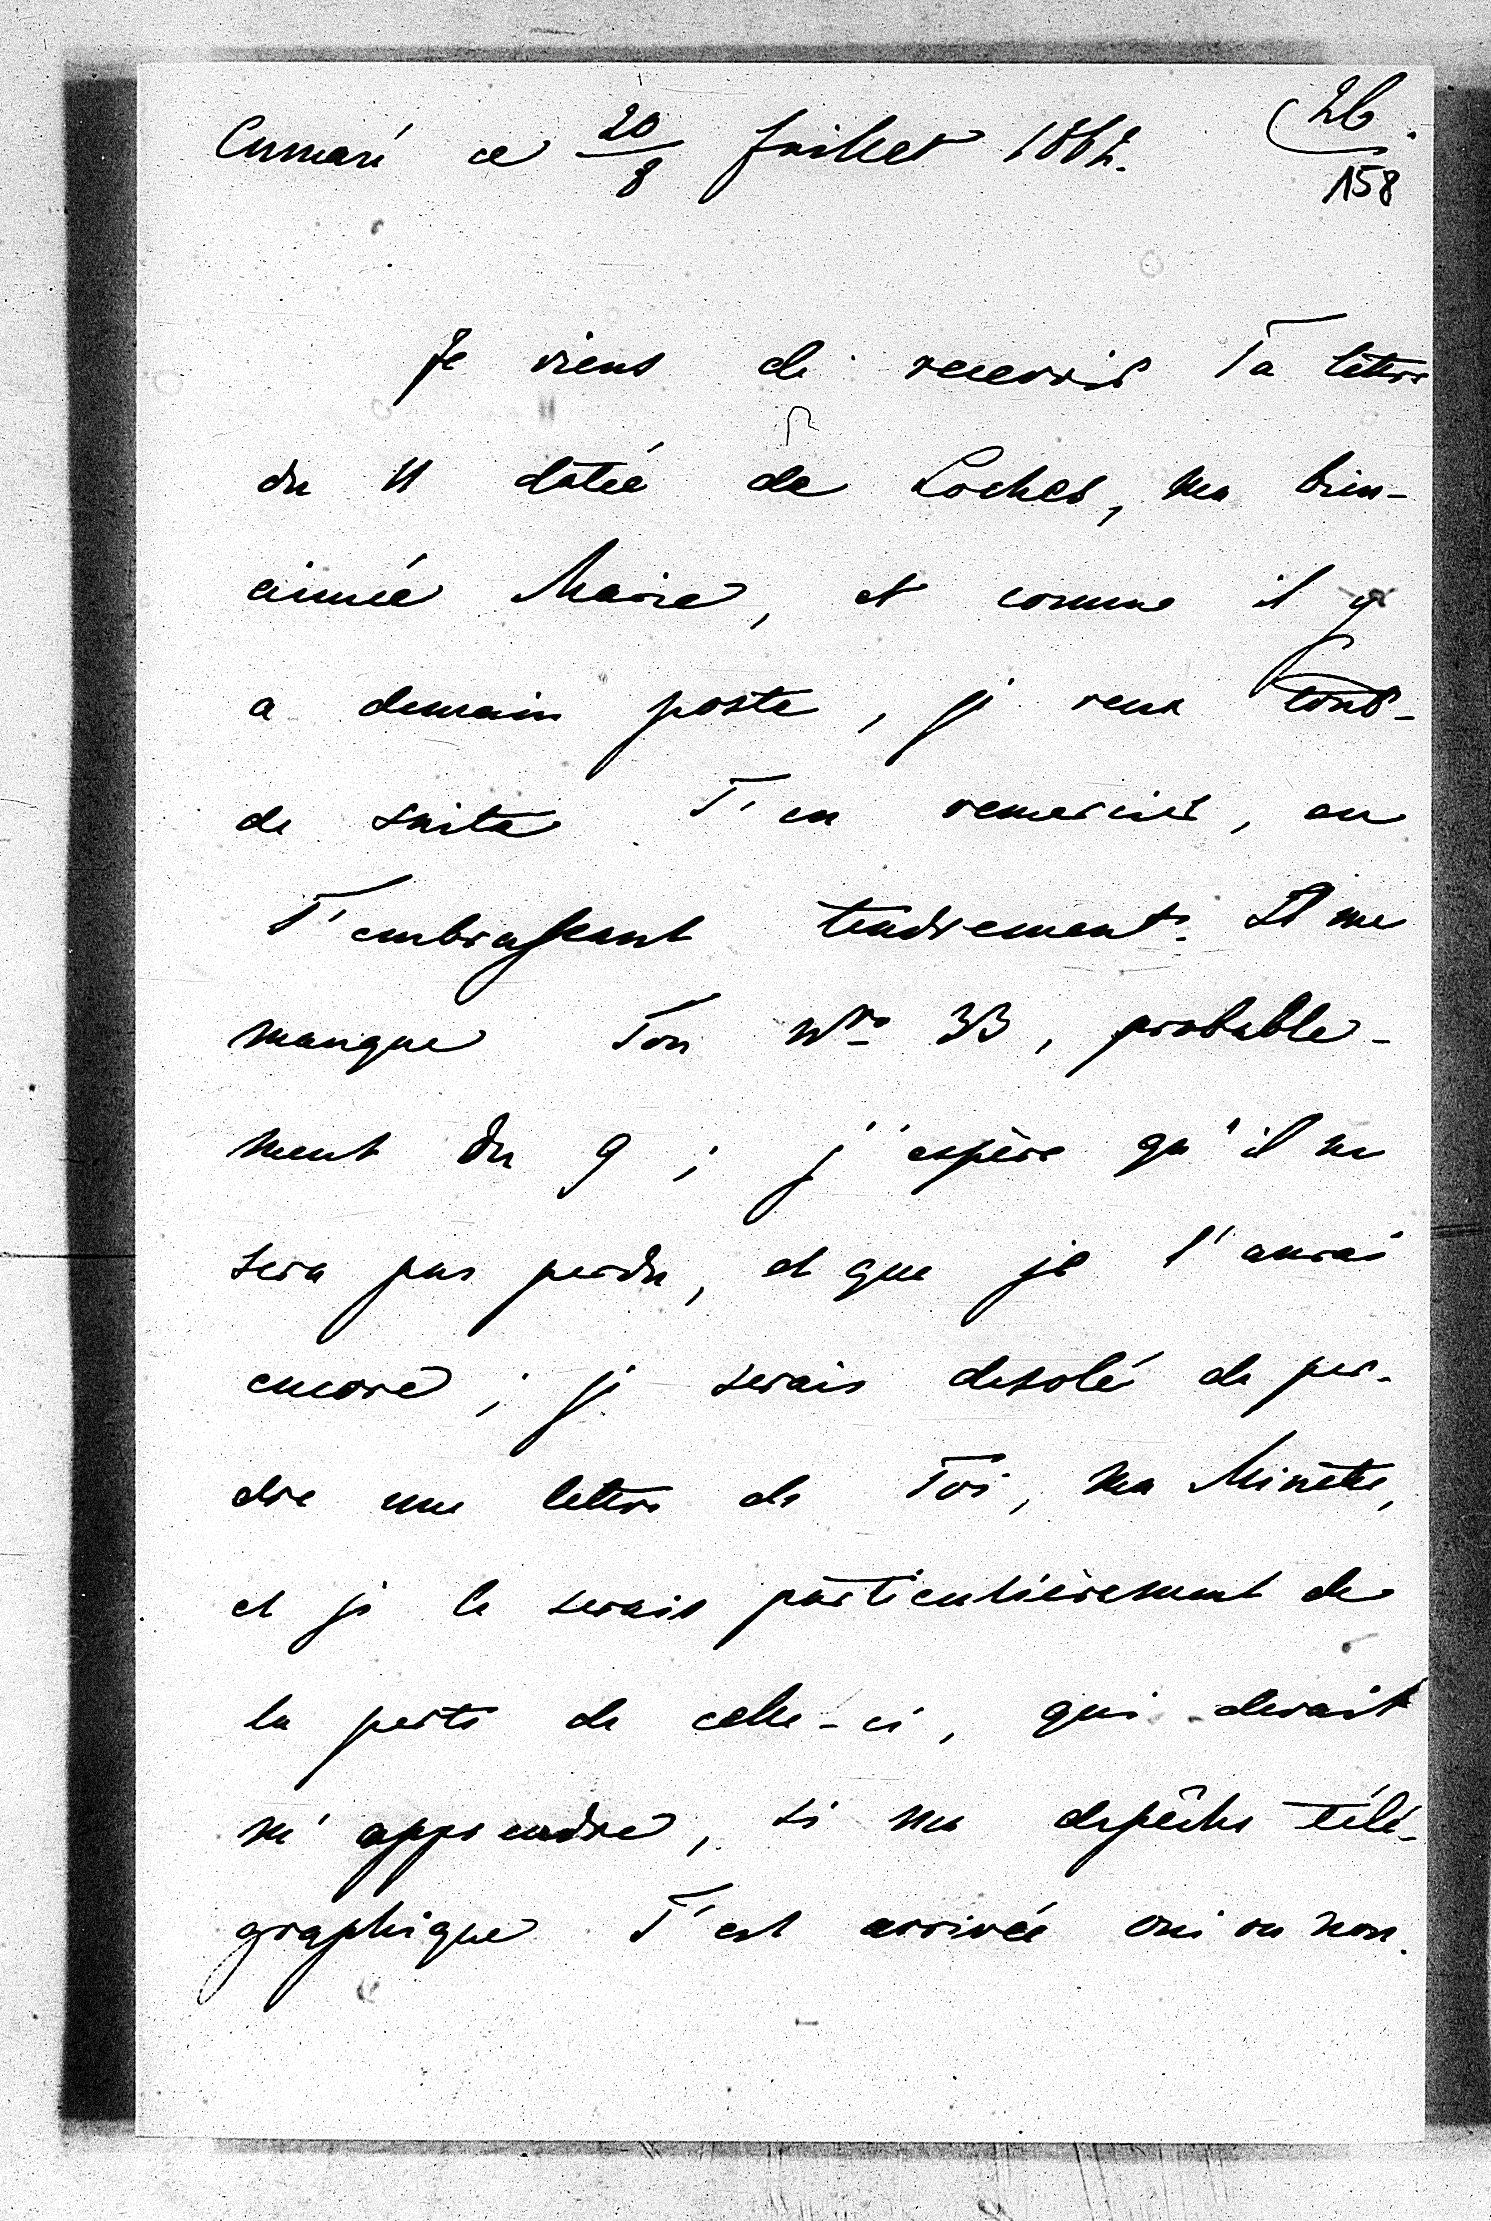 ce 20/8 Juillet 186
26.
158
Je viens de recevoir Ta lettre
du 11 datée de Loches, ma bien-
aimée Marie, et comme il y
a demain poste, je veux tout-
de suite T'en remercier, en
T'embrassant tendrement. Il me
manque Ton Nro 33, probable-
ment du 9; j'espère qu'il ne
sera pas perdu, et que je l'aurai
encore; je serais desolé de per-
dre une lettre de Toi, ma Minette,
et je le serais particulièrement de
la perte de celle-ci, qui devait
m'apprendre, si ma depêche télé-
graphique T'est arrivée oui ou non.